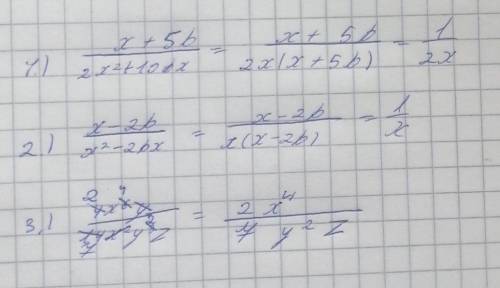 1.) x + 5b / 2x² + 10bx = x + 5b / 2x(x + 5b) = 1 / 2x
2.) x - 2b / x² - 2bx = x - 2b / x(x - 2b) = 1 / x
3.) = 2 x⁴ / 7 y² z